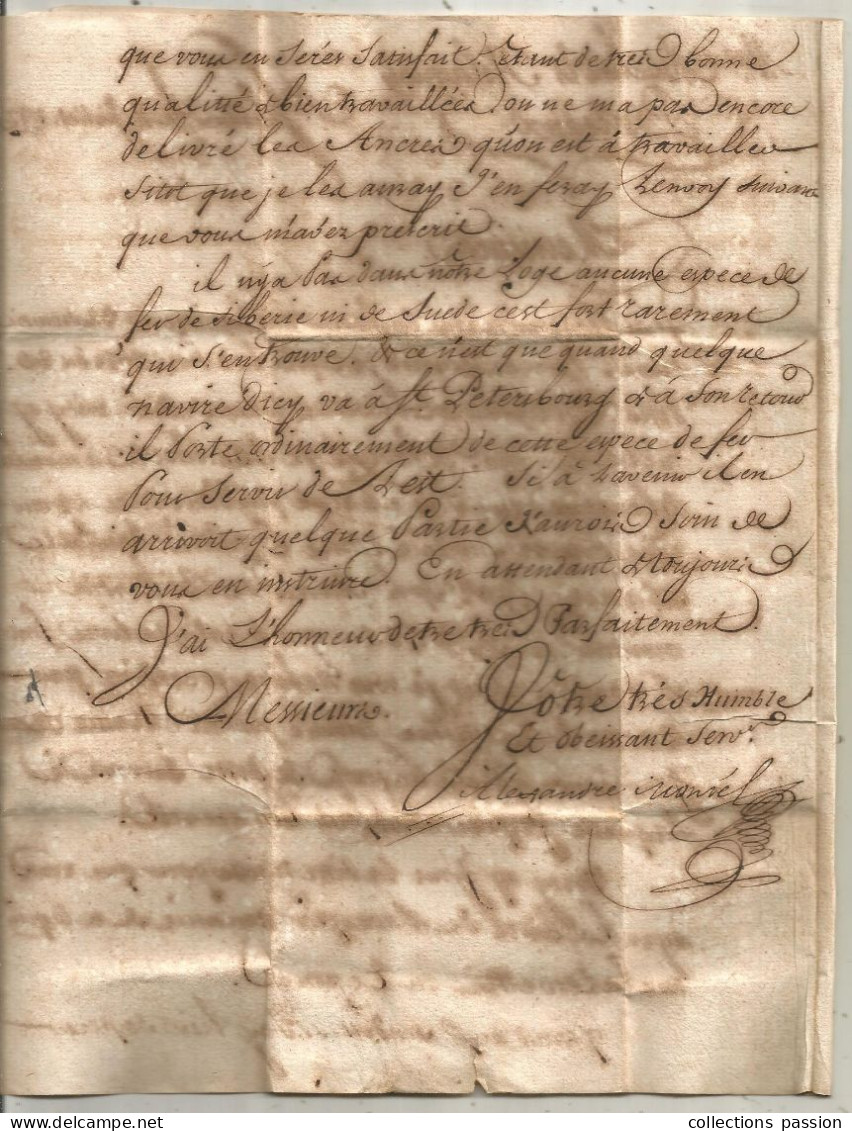 que vous en serés satisfait. Etant de tres bonne
qualitté & bien travaillées, on ne ma pas encore
delivré les Ancres qu'on est á travailler
sitot que je les auray J'en feray Lenvoy suivant
que vous m'avez prescrit.
il n'y a Pas dans nôtre Loge aucune espece de
fer de siberie ni de Suede c'est fort rarement
qui s'en trouve. & ce n'est que quand quelque
navire d'icy va á St. Petersbourg & á son retour
il Porte ordinairement de cette espece de fer
Pour servir de Lest. Si á Lavenir il en
arrivoit quelque Partie J'aurois soin de
vous en instruire. En attendant & toujours
J'ai L'honneur detre tres Parfaitement.
Messieurs.
Vôtre trés Humble
Et obeissant Servr.
Alexandre
collections passion